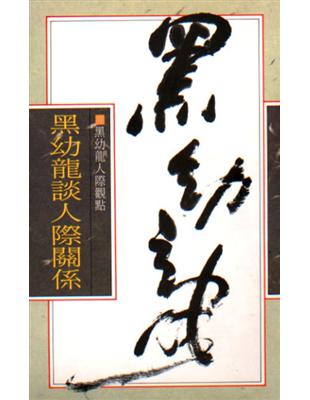 黑幼龍
黑幼龍人際觀點
黑幼龍談人際關係